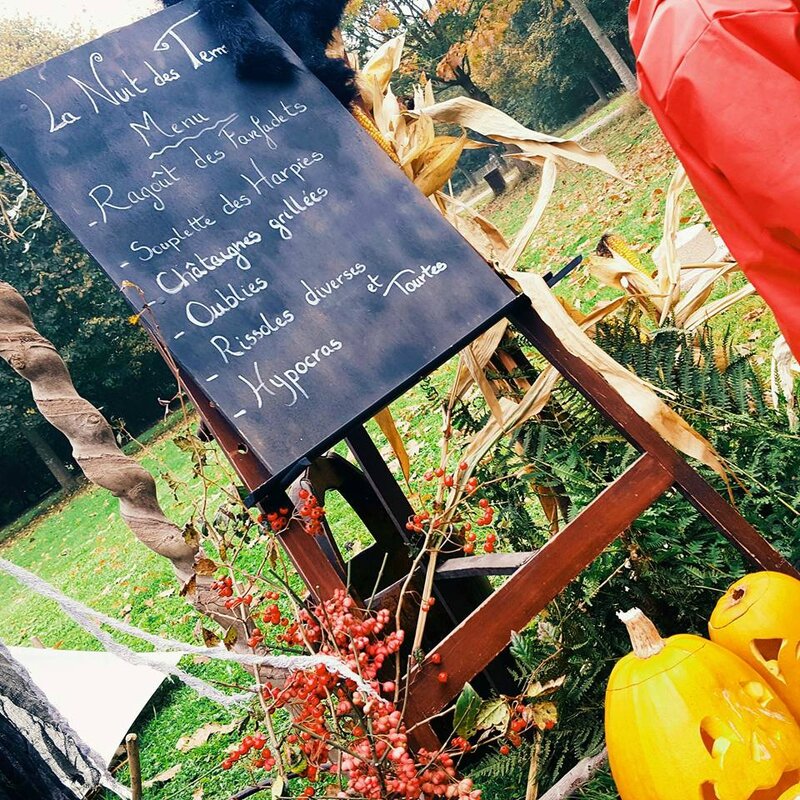 La Nuit des Terr
Menu
- Ragoût des Farfadets
- Souplette des Harpies
- Châtaignes grillées
- Oublies
- Rissoles diverses et Tourtes
- Hypocras